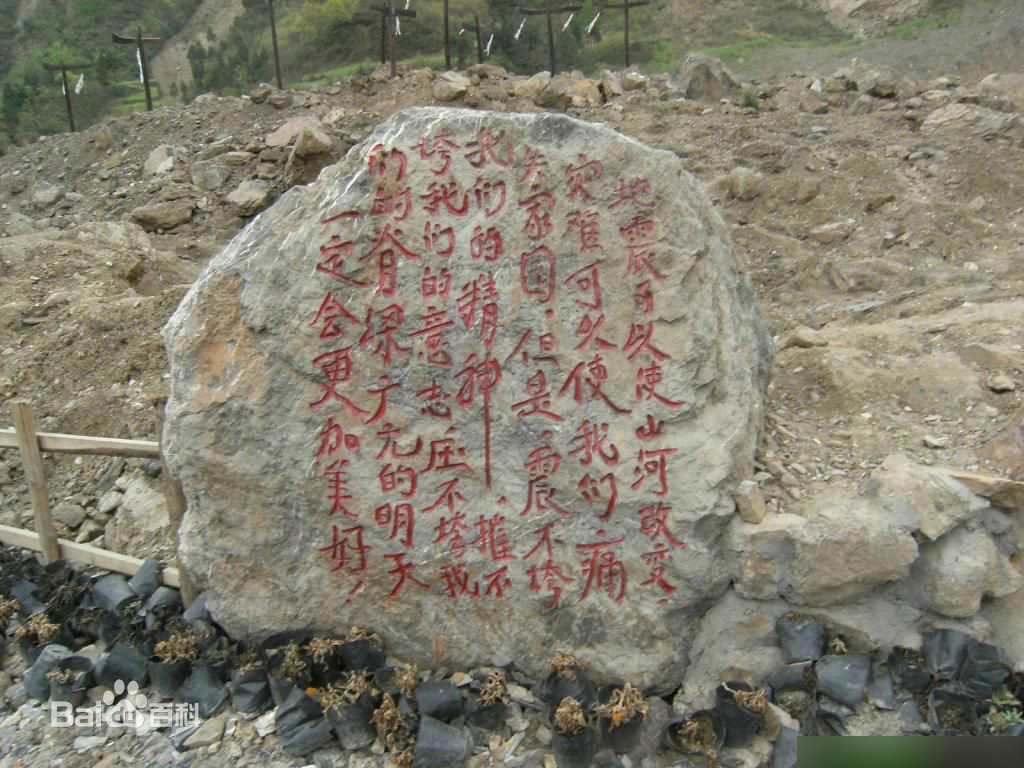 地震可以使山河改变，
灾难可以使我们痛
失家园，但是震不垮
我们的精神，摧不
垮我们的意志压不垮我
们的脊梁广元的明天
一定会更加美好！
Bai百科